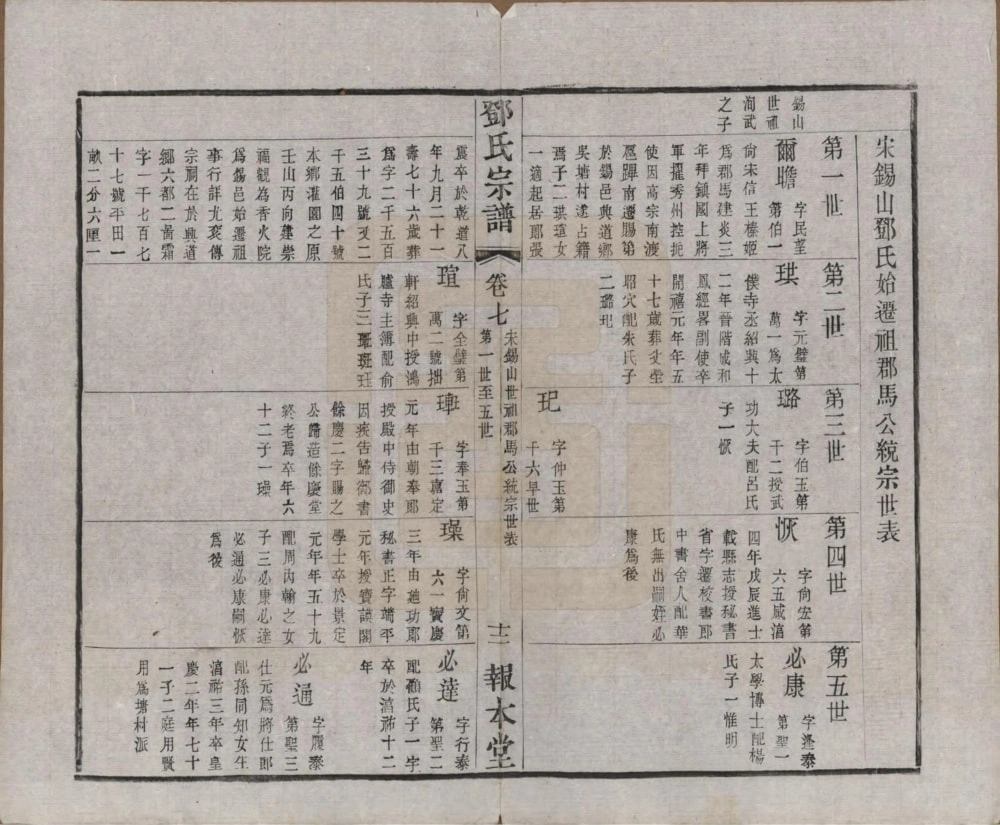 宋錫山鄧氏始遷祖郡馬公統宗世表
第一世
第二世
第三世
第四世
第五世
錫山
世祖
洵武
之子
爾瞻
字民望
第伯一
尙宋信王榛姬
爲郡馬建炎三
年拜鎮國上將
軍擢秀州控扼
使因高宗南渡
扈蹕南遷賜第
於錫邑興道鄉
吳塘村遂占籍
焉子二珙瑄女
一適起居郎張
震卒於乾道八
年九月二十一
壽七十六歲葬
爲字二千五百
三十九號及二
千五伯四十號
本鄉灌園之原
壬山丙向建崇
福觀爲香火院
爲錫邑始遷祖
事行詳尤袤傳
宗祠在於興道
鄉六都二啚霜
字一千七百七
十七號平田一
畝二分六厘一
珙
字元璧第
萬一爲太
僕寺丞紹興十
二年晉階成和
鳳經畧副使卒
開禧元年年五
十七歲葬父塋
昭穴配朱氏子
二璐玘
瑄
字全璧第
萬二號拙
軒紹興中授鴻
臚寺主簿配俞
氏子三
璐
字伯玉第
千二授武
功大夫配呂氏
子一恢
玘
字仲玉第
千六早世
字奉玉第
千三嘉定
元年由朝奉郎
授殿中侍御史
因疾告歸御書
餘慶二字賜之
公歸造餘慶堂
終老焉卒年六
十二子一璪
恢
字尙宏第
六五咸淳
四年戊辰進士
載縣志授秘書
省字遷校書郎
中書舍人配華
氏無出嗣姪必
康爲後
璪
字尙文第
六一寳慶
三年由迪功郎
秘書正字端平
元年授寳謨閣
學士卒於景定
元年年五十九
配周內翰之女
子三必康必達
必通必康嗣恢
爲後
必康
字逢泰
第聖一
太學博士配楊
氏子一惟明
必達
字行泰
第聖二
配顧氏子一字
卒於淳祐十二
年
必通
字履泰
第聖三
仕元爲將仕郎
配孫同知女生
淳祐三年卒皇
慶二年年七十
一子二庭用賢
用爲塘村派
鄧氏宗譜
卷七
宋錫山世祖郡馬公統宗世表
第一世至五世
十二
報本堂